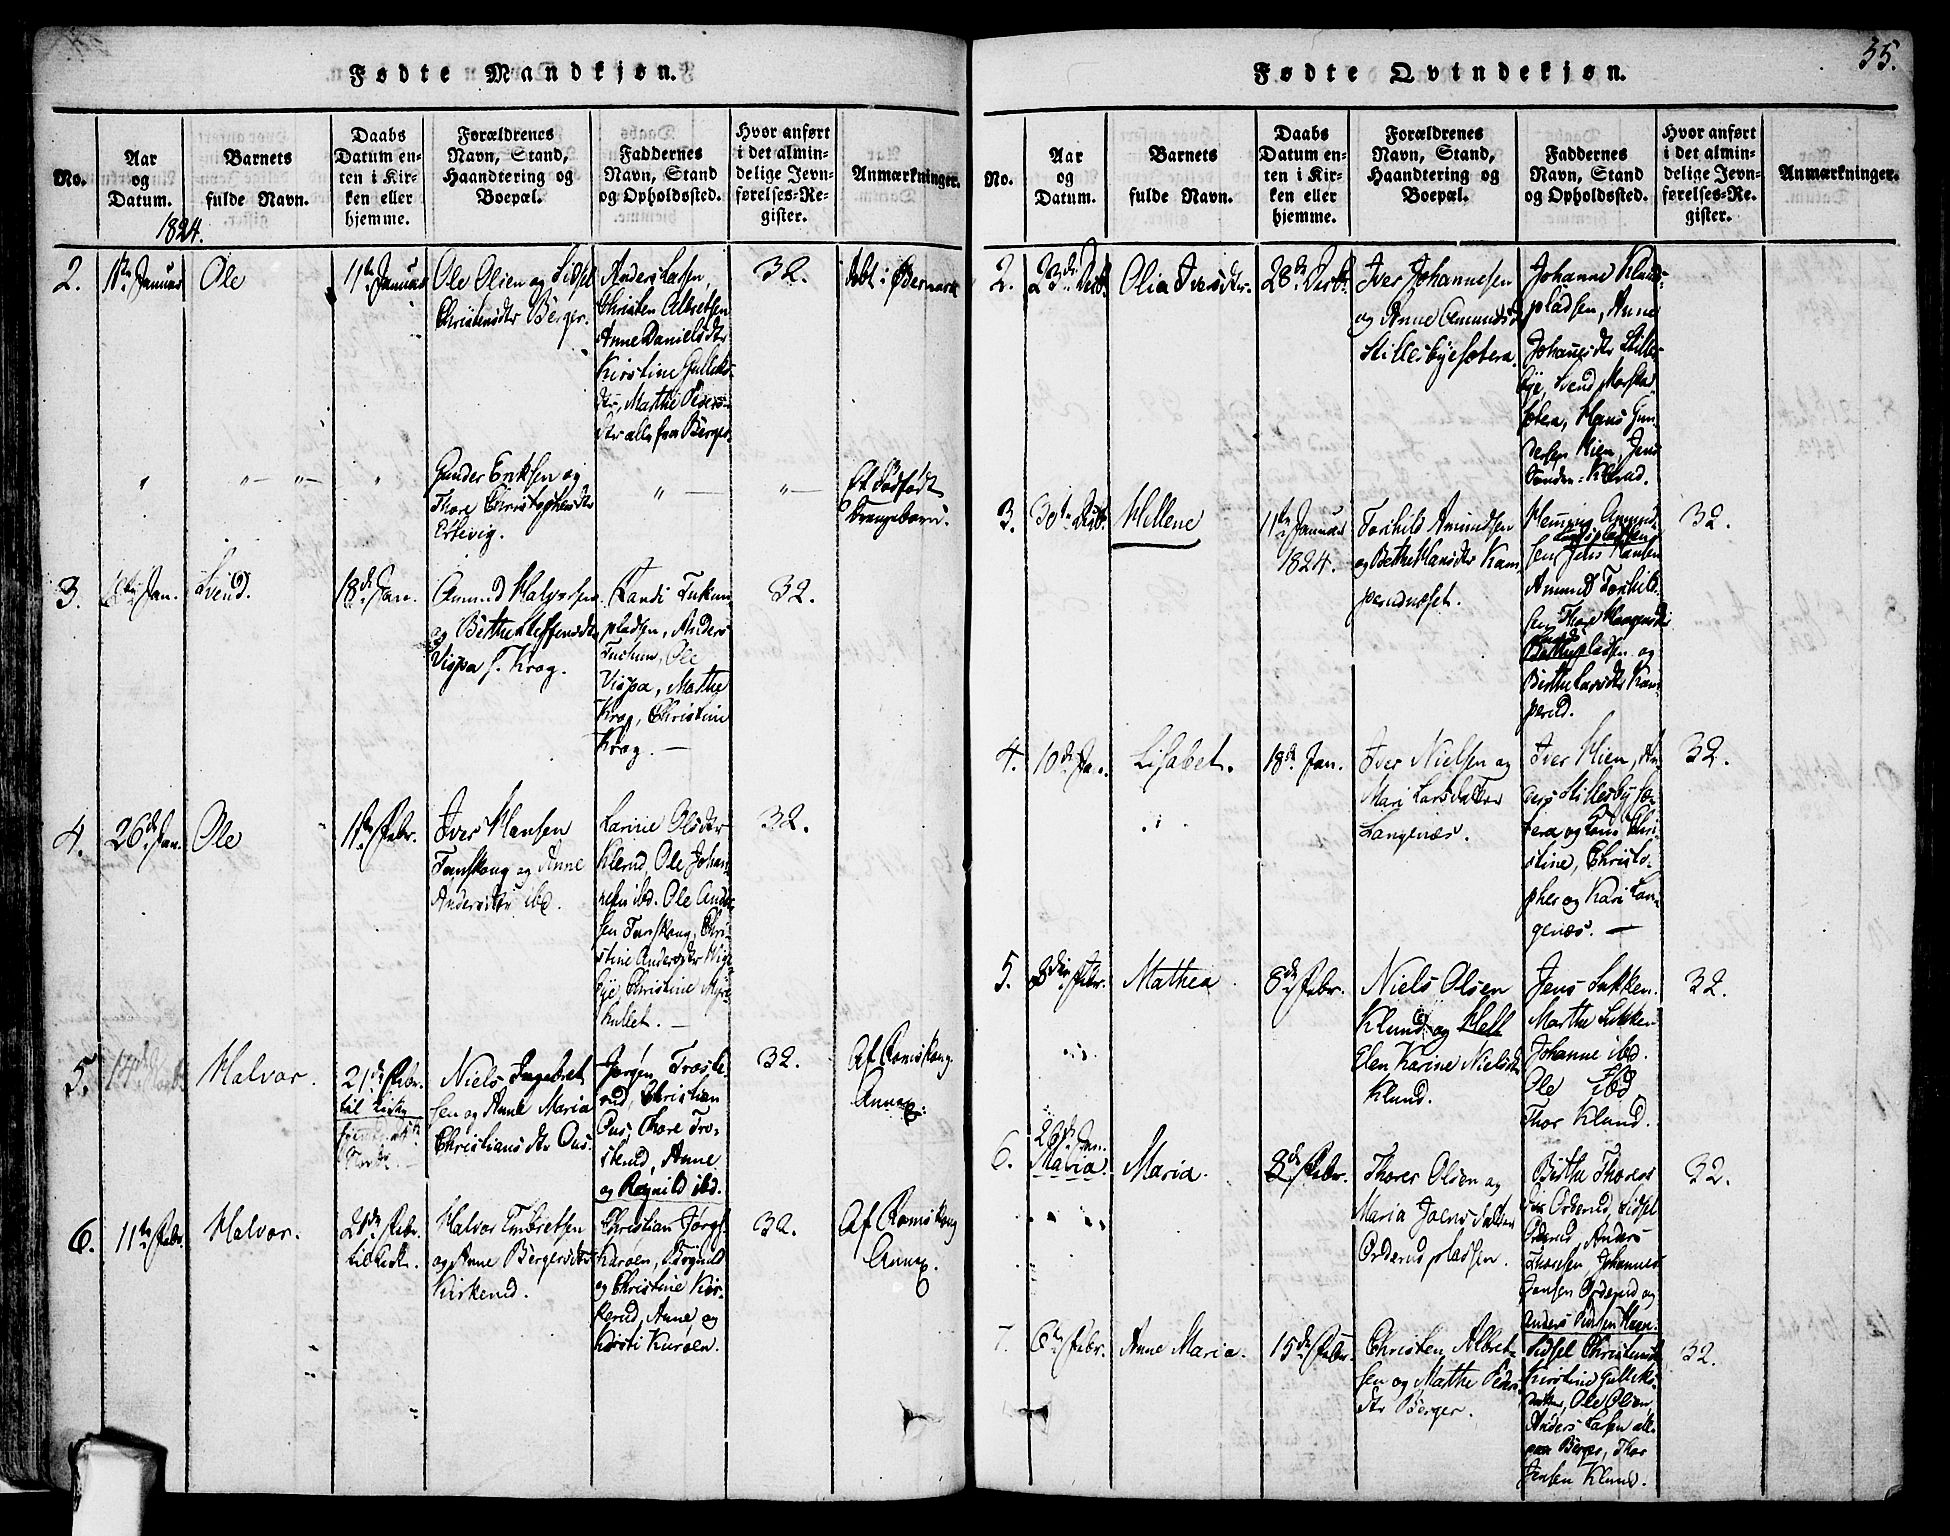 Fødte Mandkjøn.
No.
Aar
og
Datum.
Barnets
fulde Navn.
Daabs
Datum en-
ten i Kir-
ken eller
hjemme.
Forældrenes
Navn, Stand,
Haandtering og
Boepæl.
Faddernes
Navn, Stand
og Opholdssted.
Hvor anført
i det almin-
delige Jevn-
førelses-Re-
gister.
Anmærkninger.
1824.
2.
Januar
Ole
11te Januar
Ole Olsen og Sidsel
Christensdtr Berger.
Anders Larsen,
Christen Albretsen
Anne Danielsdtr
Kirstine Gulleks-
dtr, Marthe Peders-
dtr alle fra Berger.
32.
Gunder Eriksen og
Thore Christophersdtr
Ertevig.
Et Dødfødt
Drengebarn.
3.
Jan.
Svend.
18de Jan.
Amund Halvorsen
og Berthe Steffensdtr
Vispa f. Krog.
Randi
pladsen, Anders
Ole
Vispa, Marthe
Krog, Christine
Krog. —
32.
4.
26de Jan.
Ole
1ste Febr.
Iver Hansen
og Anne
Andersdtr ibd.
Larine Olsdtr
Klerud, Ole Johan-
nesen ibd. Ole Ander-
sen Chri-
stine Andersdtr
bye Christine
kullet. —
32.
5.
Halvor.
21de Febr.
Niels Ingebret-
sen og Anne Maria
Christiansdtr Ous.
Jørgen Troste-
rud, Christian
Ous Thore Tro-
sterud, Anne
og Ragnild ibd.
32.
Af Romskoug
Annex.
6.
11te Febr.
Halvor.
21de Febr.
Halvor Embretsen
og Anne Bergersdtr
Kirkerud.
Christian
Kuroen,
og Christine Kir-
kerud, Anne og
Kirsti Kuroen.
32.
Af Romskoug
Annex.
Fødte Qvindekjøn.
35.
No.
Aar
og
Datum.
Barnets
fulde Navn.
Daabs
Datum en-
ten i Kir-
ken eller
hjemme.
Forældrenes
Navn, Stand,
Haandtering og
Boepæl.
Faddernes
Navn, Stand
og Opholdssted.
Hvor anført
i det almin-
delige Jevn-
førelses-Re-
gister.
Anmærkninger.
2.
23de Decbr.
Olia Iversdtr.
28de Decbr.
Iver Johannesen
og Anne Amundsd
Stillesbyesætera.
Johanne
pladsen, Anne
Johannesdtr Stilles-
bye, Svend
sætera, Hans Gun-
dersen Hien, Jens
3.
30te Decbr.
Hellene
11te Januar
1824.
Torkild Amundsen
og Berthe Hansdtr Kam-
perudnæset.
Henning Amund-
sen Jens Hansen
Amund Torkild-
sen Thore
pladsen og
Berthe Larsdtr Kam-
perud.
32.
4.
10de Jan.
Lisabet.
18de Jan.
Iver Nielsen og
Mari Larsdatter
Langenæs.
Iver Hien, An-
ders Stillesbysæ-
tera og Chri-
stine, Christo-
pher og Kari Lan-
genæs. —
32.
5.
Febr.
Mathea
8de Febr.
Niels Olsen
Klund og Hell
Elen Karine Nielsdtr
Klund.
Jens Sukken
Marthe Sukken
Johanne ibd.
Ole ibd
Thor Klund.
32.
6.
Jan.
Maria
Maria.
8de Febr.
Thores Olsen og
Maria Joensdatter
Orderudpladsen.
Berthe Thores
dtr Orderud, Sidsel
Orderud, Anders
Thoresen Johannes
Jensen Orderud og
Anders
32.
7.
6te Febr.
Anne Maria.
15de Febr.
Christen Albret-
sen og Mathe Peders
dtr Berger.
Sidsel Christensdtr
Kirstine Gulleks-
datter, Ole Olsen
Anders Larsen alle
paa Berger, Thor
Jensen Klund.
32.